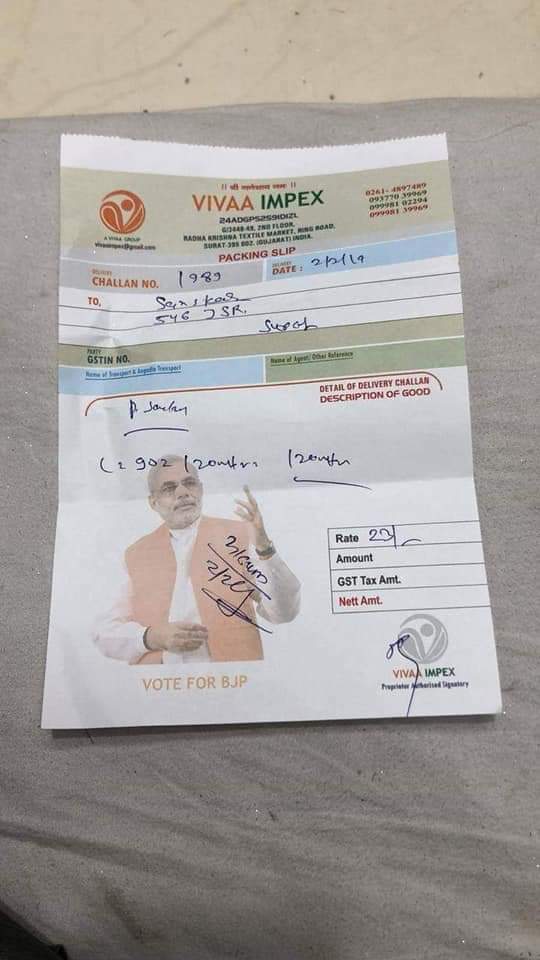 || श्री गणेशाय नमः ||
VIVAA IMPEX
24ADGPS2591D1ZL
G/3448-49, 2ND FLOOR,
RADHA KRISHNA TEXTILE MARKET, RING ROAD,
SURAT-395 002. (GUJARAT) INDIA.
0261- 4897489
093770 39969
099981 02294
099981 39969
A VIVAA GROUP
vivaaimpex@gmail.com
PACKING SLIP
DELIVERY
CHALLAN NO. 1989
DELIVERY
DATE : 2/2/19
TO,
546 JSR.
Surat
PARTY
GSTIN NO.
Name of Transport & Angadia Transport
Name of Agent; Other Reference
DETAIL OF DELIVERY CHALLAN
DESCRIPTION OF GOOD
902 120mtr. 120mtr
Rate 23/-
Amount
GST Tax Amt.
Nett Amt.
VOTE FOR BJP
VIVAA IMPEX
Proprietor Authorised Signatory